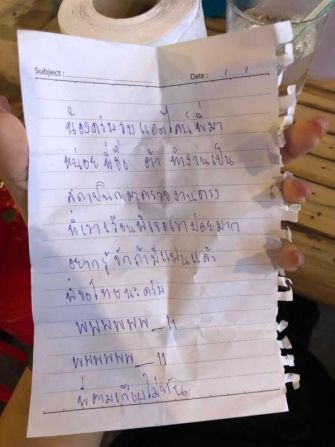 Subject : Date : / /
น้องครับรับแอดไลน์พี่มา
หน่อยพี่ชื่อ ต้า ทำงานเป็น
สถาปนิกมาตรวจงานตรง
ที่เราเรียนพี่เจอเราบ่อยมาก
อยากรู้จักถ้ามีแฟนแล้ว
พี่ขอโทษนะครับ
พพพพพพ_11
พพพพพพ_11
พี่ตามเก็บไม่ทัน